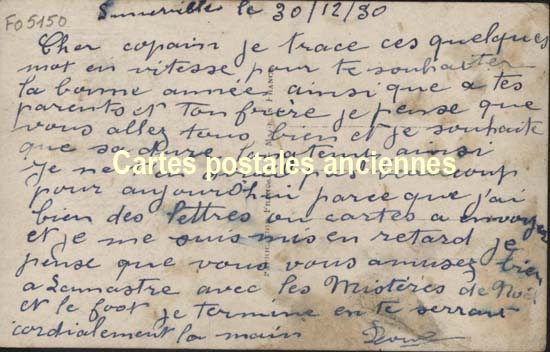 Sumerville le 30/12/30
FO5150
Cher copain je trace ces quelques
mot en vitesse pour te souhaiter
la bonne année ainsi que a tes
parents et ton frère je pense que
vous allez tous bien et je souhaite
que sa dure longtemps ainsi
Cartes postales anciennes
je ne
pour aujourd'hui parce que j'ai
bien des lettres ou cartes a envoyer
et je me suis mis en retard je
pense que vous vous amusez bien
a Lamastre avec les Mistères de Noël
et le foot je termine en te serrant
cordialement la main